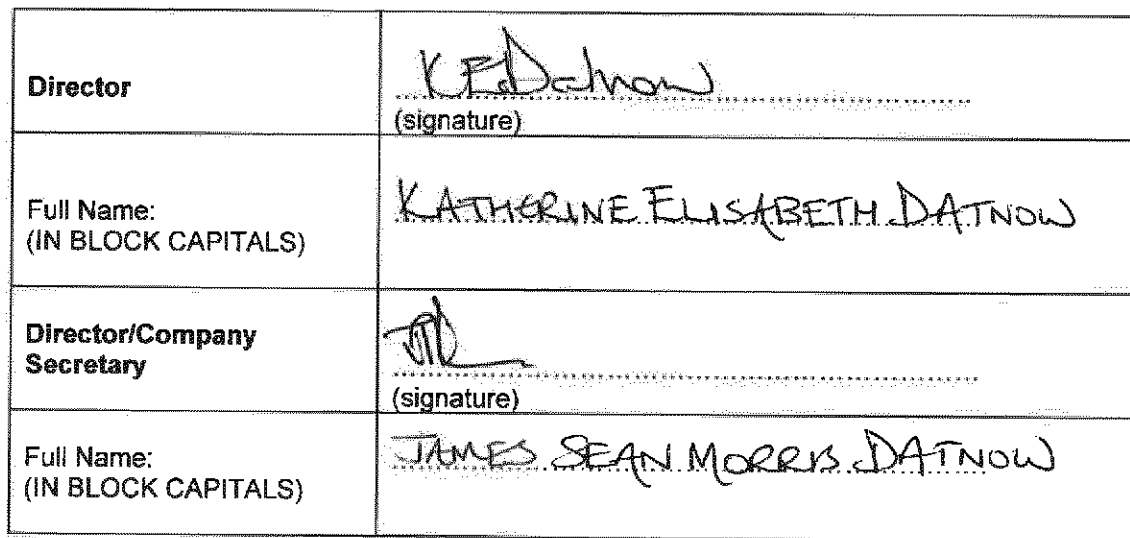 Director
K E Datnow
(signature)
Full Name:
(IN BLOCK CAPITALS)
KATHERINE ELISABETH DATNOW
Director/Company
Secretary
(signature)
Full Name:
(IN BLOCK CAPITALS)
JAMES SEAN MORRIS DATNOW